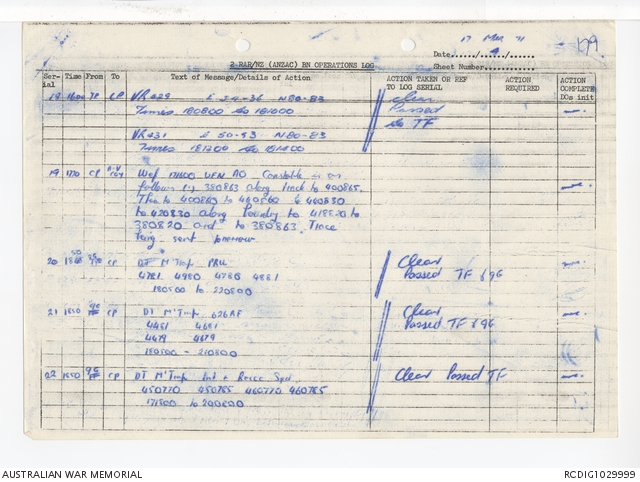 17 Mar 71
179
2 RAR/NZ (ANZAC) BN OPERATIONS LOG
Date....../..4.../......
Sheet Number...............
Ser- ial Time From To Text of Message/Details of Action ACTION TAKEN OR REF TO LOG SERIAL ACTION REQUIRED ACTION COMPLETE DOs init
18 1600 TF CP VR 229 E 24-36 N80-83 Clear
Times 180800 to 181000 Passed
to TF
VR 231 E 50-53 N80-83
Times 181200 to 181400
19 1770 CP Wef VFN AO Constable is as
follows 380863 along track to 400865.
Then to 400860 to 420830
to 420830 along to 418820 to
380820 and to 380863. Trace
being sent
20 CP DT M'Tmp PRU Clear
4781 4980 4780 4881 Passed TF & 96
180500 to 220800
21 1850 CP DT M'Tmp 626RF Clear
4481 4681 Passed TF & 96
4479 4679
180500 - 210500
22 1850 CP DT M'Tmp Int & Recce Sqn Clear Passed TF
450770 450785 460770 460785
171500 to 200800
AUSTRALIAN WAR MEMORIAL
RCDIG1029999